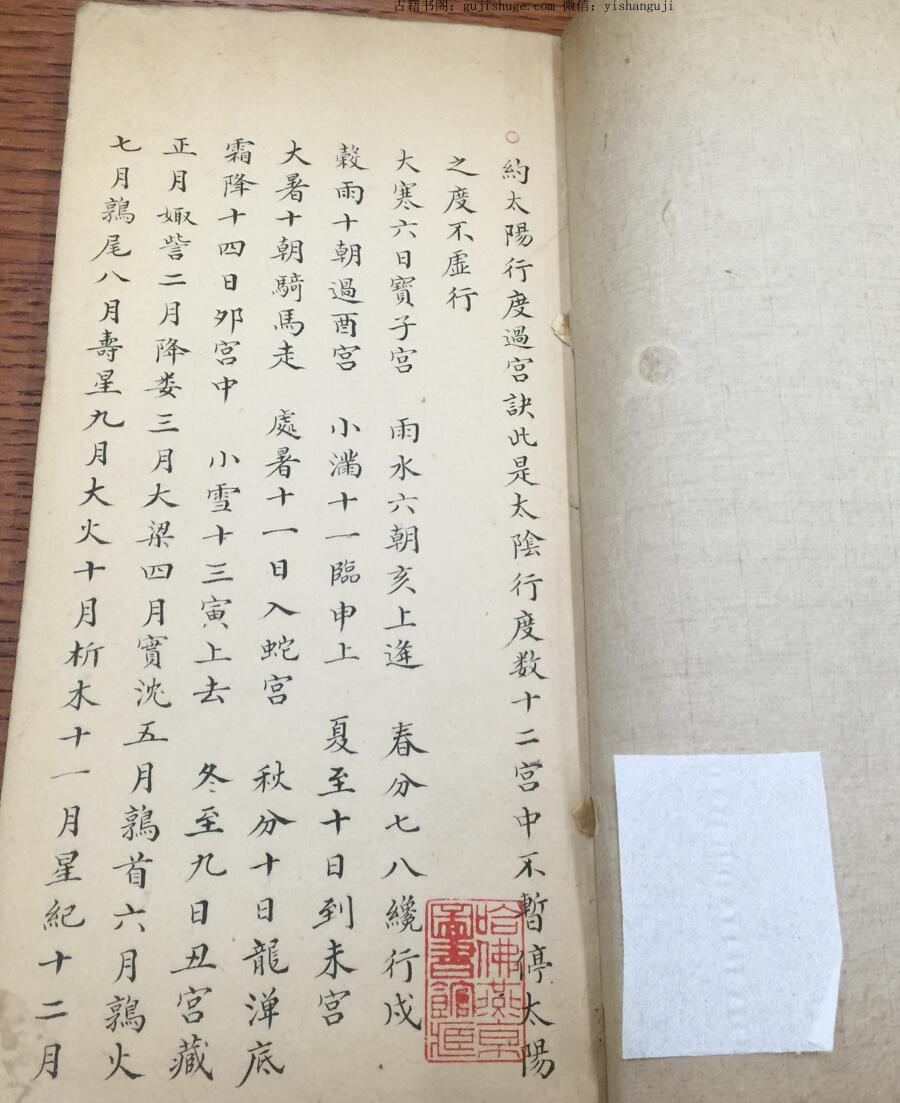 古籍书阁：gujishuge.com 微信：yishanguji
○約太陽行度過宮訣此是太陰行度数十二宮中不暫停太陽
之度不虛行
大寒六日寶子宮 雨水六朝亥上逄 春分七八纔行戍
穀雨十朝過酉宮 小滿十一臨申上 夏至十日到未宮
大暑十朝騎馬走 處暑十一日入蛇宮 秋分十日龍潭底
霜降十四日夘宮中 小雪十三寅上去 冬至九日丑宮藏
正月娵訾二月降娄三月大梁四月實沈五月鶉首六月鶉火
七月鶉尾八月壽星九月大火十月析木十一月星紀十二月
哈佛燕京
圖書館